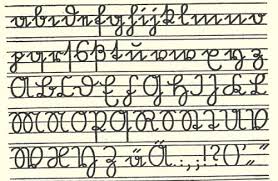 a b c d e f g h i j k l m n o
p q r ſ s ß t u v w x y z
A B C D E F G H I J K L
M N O P Q R S T U V
W X Y Z ü Ä . : , ; ! ? ( ) ' „ "